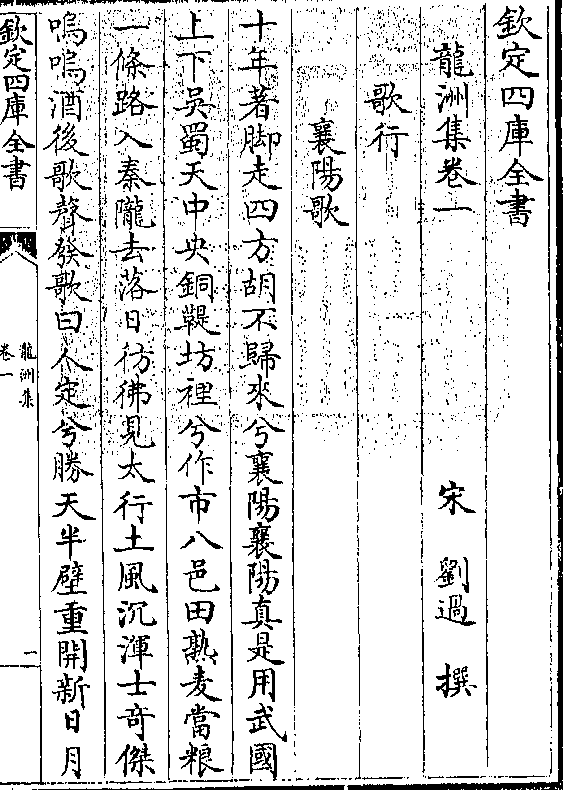 欽定四庫全書
龍洲集卷一
宋 劉過 撰
歌行
襄陽歌
十年著脚走四方胡不歸來兮襄陽襄陽真是用武國
上下吳蜀天中央銅鞮坊裡兮作市八邑田熟麦當粮
一條路入秦隴去落日彷彿見太行土風沉渾士奇傑
嗚嗚酒後歌聲發歌曰人定兮勝天半壁重開新日月
欽定四庫全書
龍洲集
卷一
一